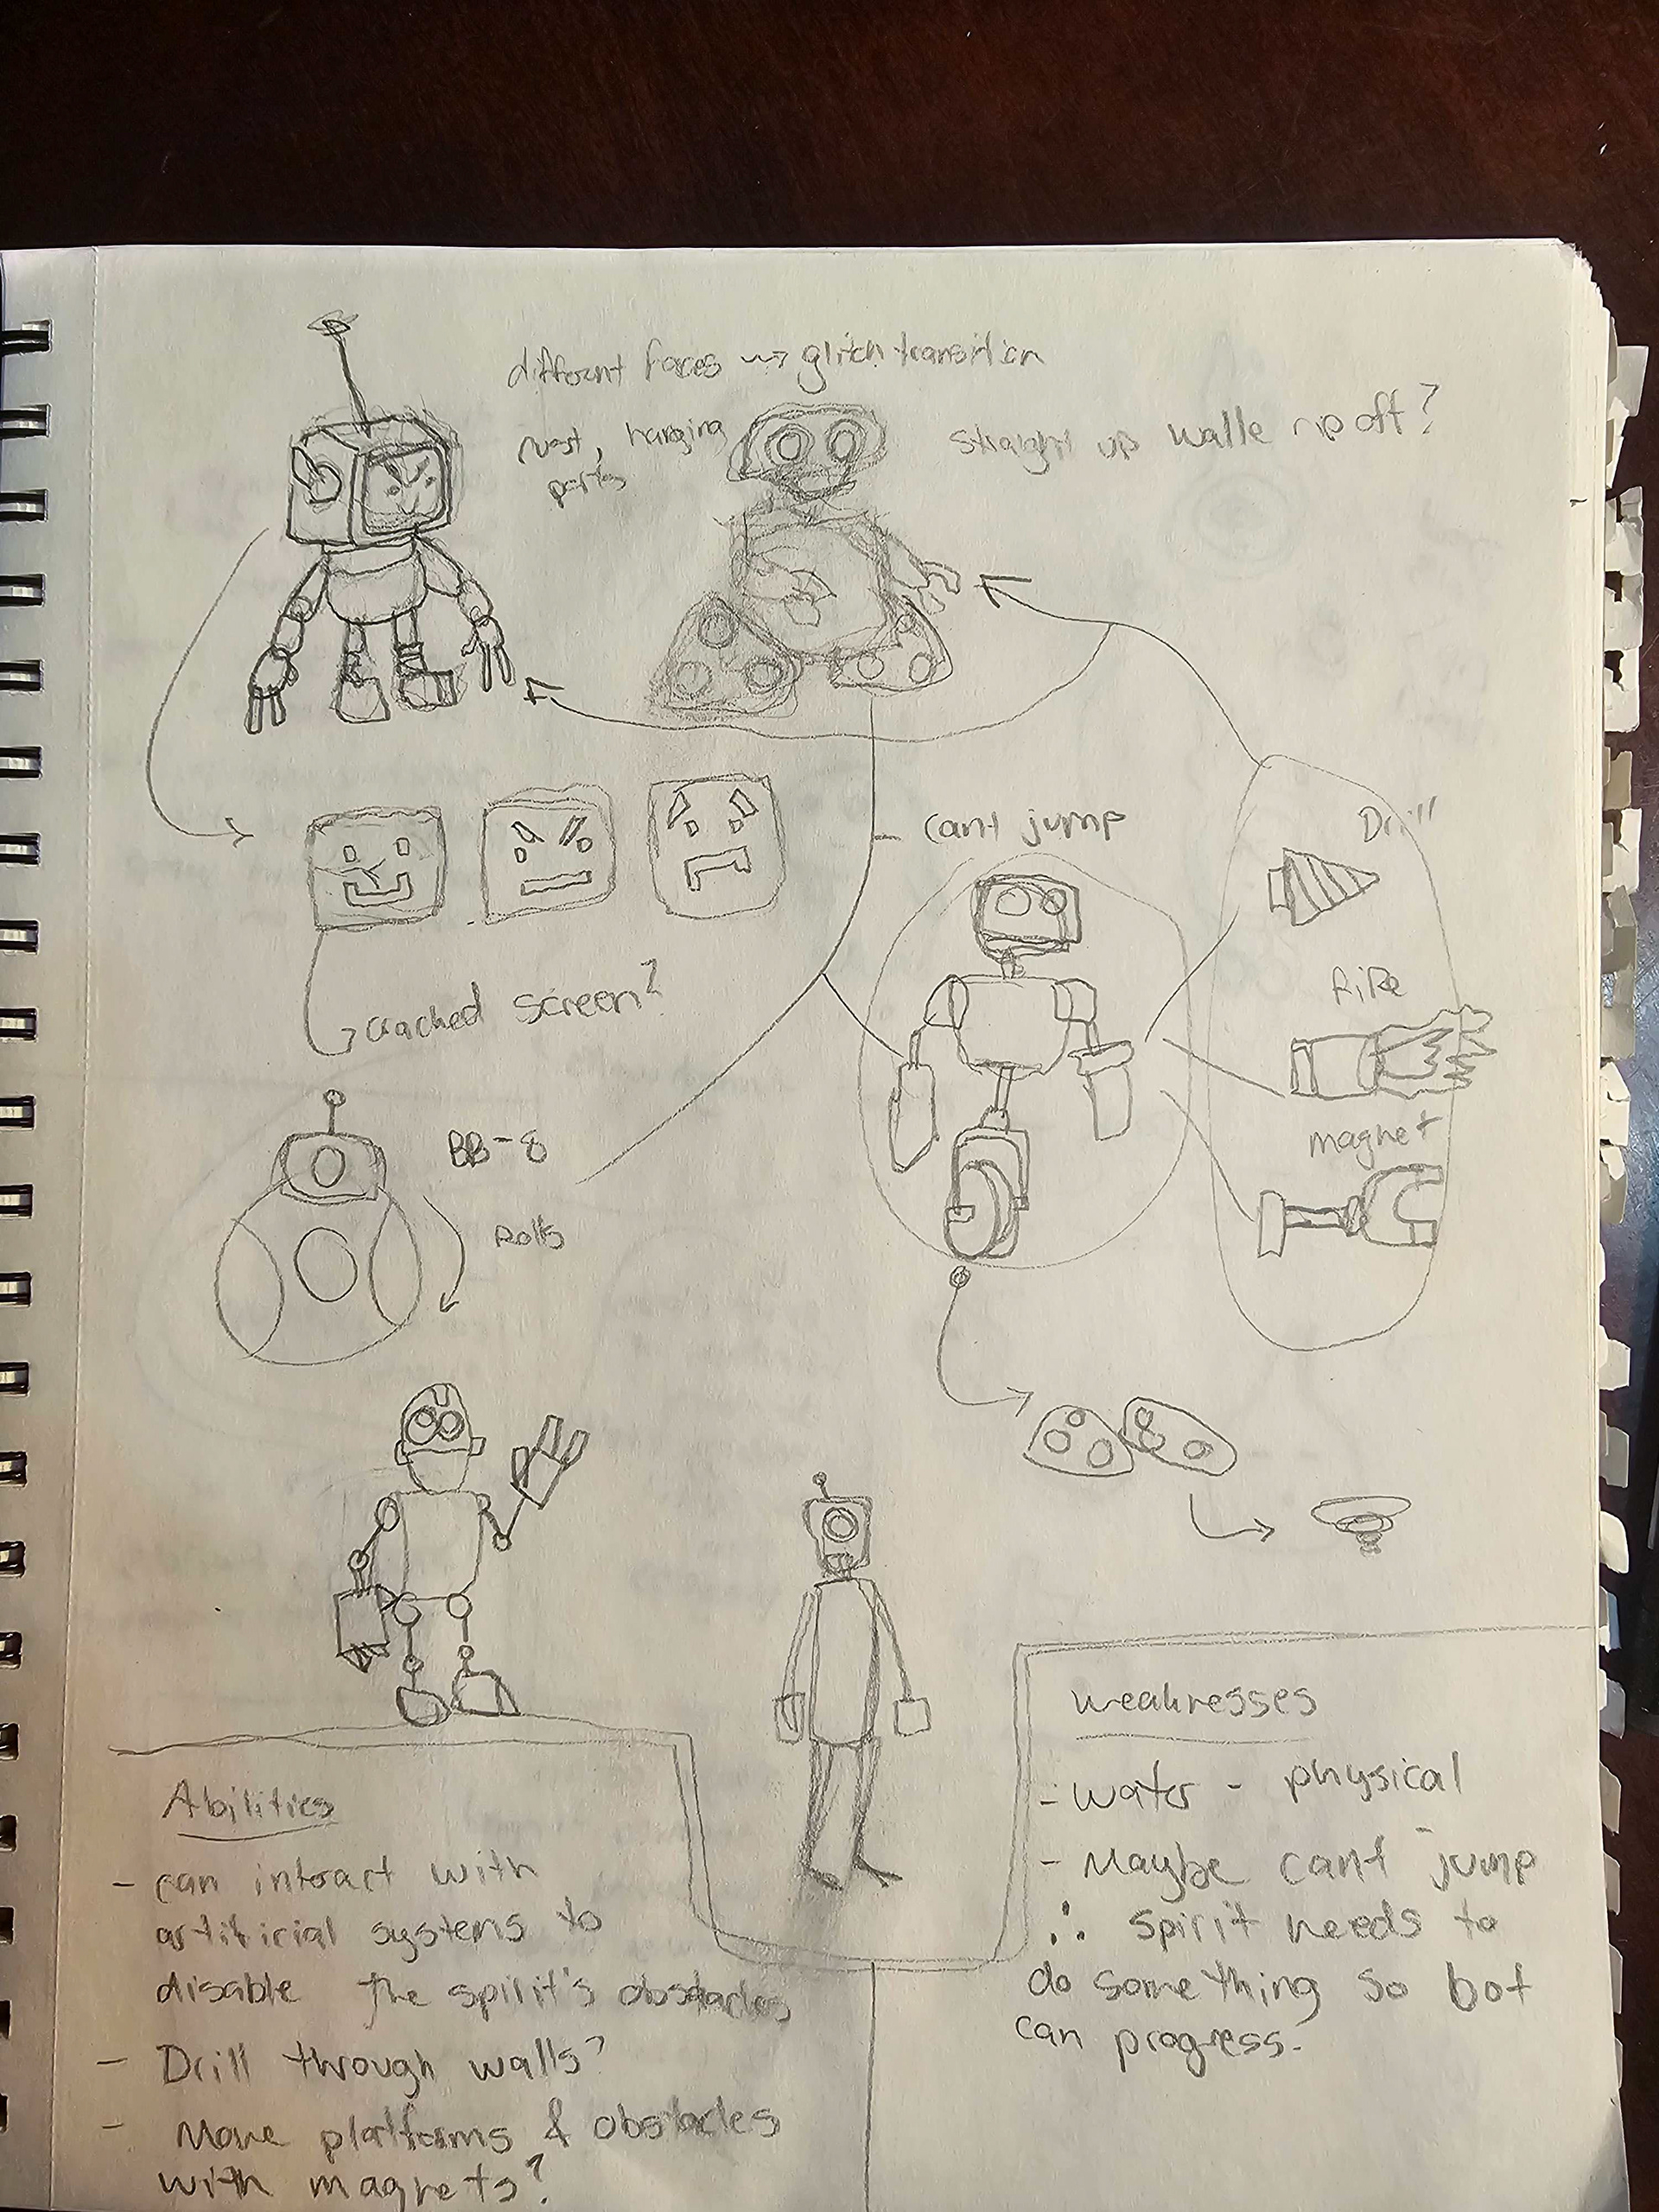 different faces ~> glitch transition
rust, hanging
parts
straight up walle rip off?
cant jump
Drill
fire
magnet
cracked screen?
BB-8
Rolls
Abilities
- can interact with
artificial systems to
disable the spirit's obstacles
- Drill through walls?
- Move platforms & obstacles
with magnets?
weaknesses
- water - physical
- Maybe cant jump
∴ spirit needs to
do something so bot
can progress.